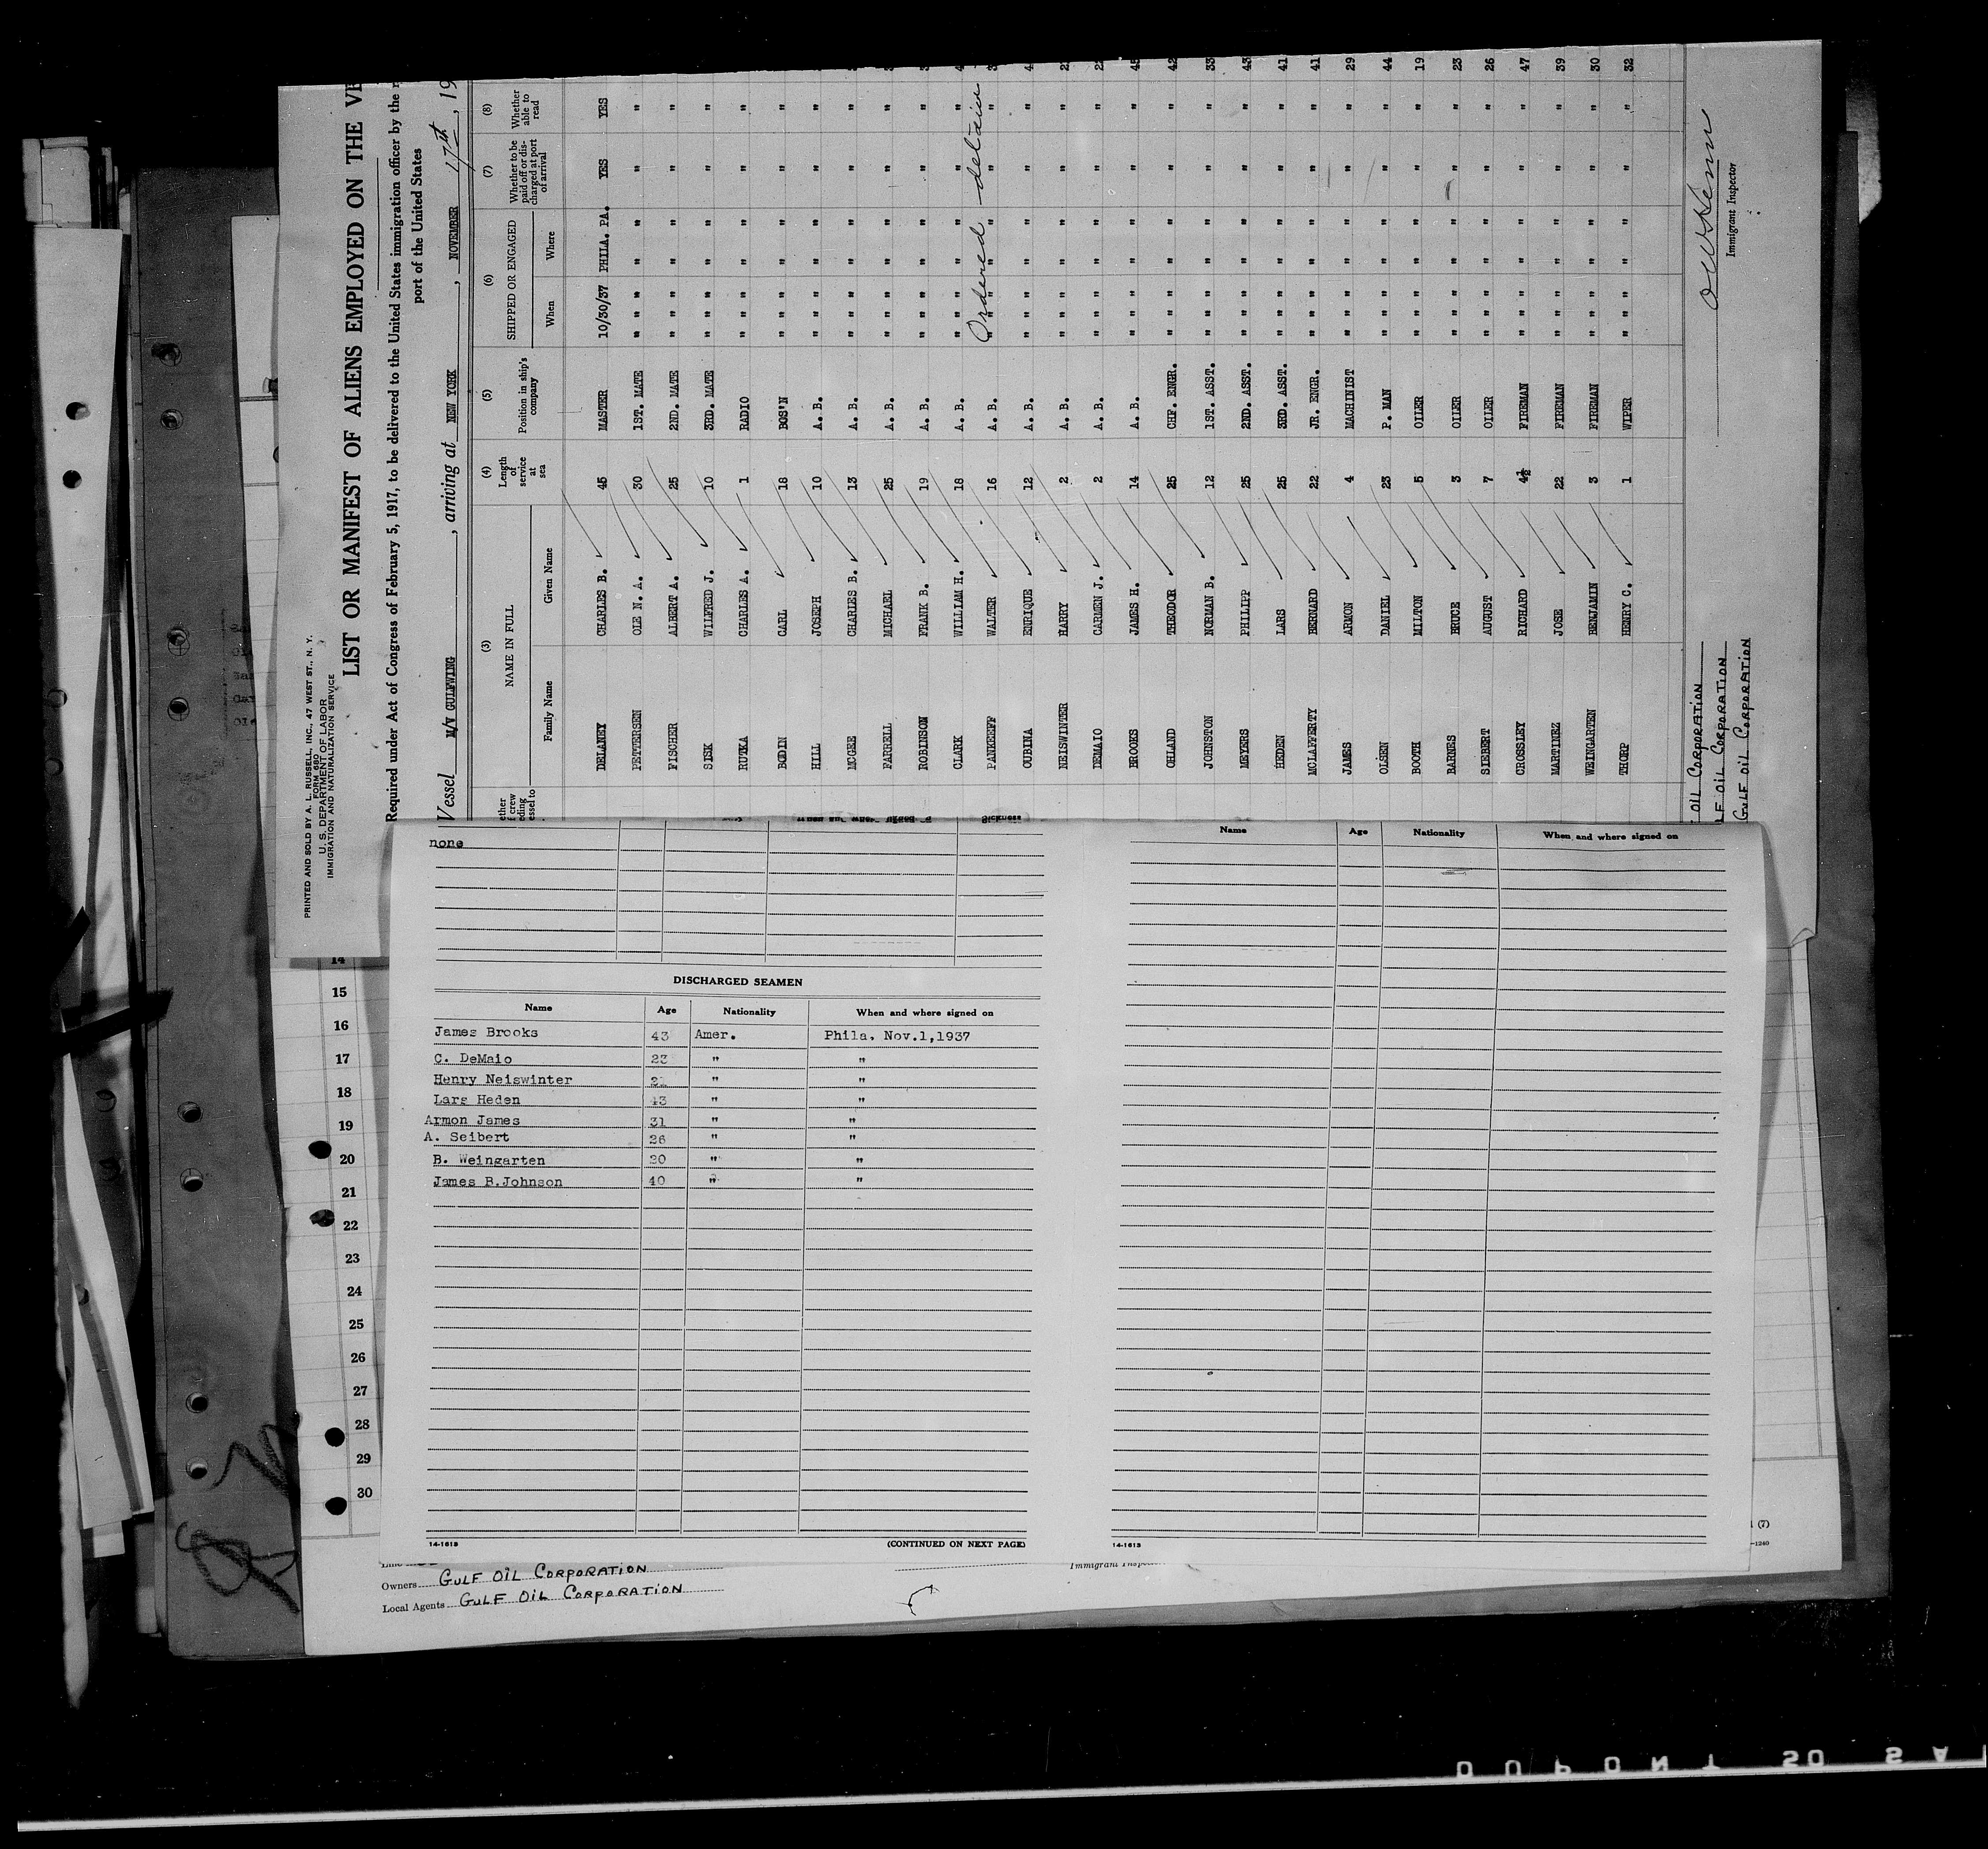 PRINTED AND SOLD BY A. L. RUSSELL, INC., 47 WEST ST., N. Y.
FORM 680
U. S. DEPARTMENT OF LABOR
IMMIGRATION AND NATURALIZATION SERVICE
LIST OR MANIFEST OF ALIENS EMPLOYED ON THE VE
Required under Act of Congress of February 5, 1917, to be delivered to the United States immigration officer by the r
port of the United States
Vessel M/V GULFWING, arriving at NEW YORK, NOVEMBER 17th, 19
(3) (4) (5) (6) (7) (8)
NAME IN FULL Length of service at sea Position in ship's company SHIPPED OR ENGAGED Whether to be paid off or discharged at port of arrival Whether able to read
Family Name Given Name When Where
DELANEY CHARLES B. 45 MASTER 10/30/37 PHILA. PA. YES YES
PETTERSEN OLE N. A. 30 1ST. MATE " " " " " " "
FISCHER ALBERT A. 25 2ND. MATE " " " " " " "
SISK WILFRED J. 10 3RD. MATE " " " " " " "
RUVKA CHARLES A. 1 RADIO " " " " " " "
BODIN CARL 18 BOS'N " " " " " " "
HILL JOSEPH 10 A. B. " " " " " " "
MCGEE CHARLES B. 13 A. B. " " " " " " "
FARRELL MICHAEL 25 A. B. " " " " " " "
ROBINSON FRANK B. 19 A. B. " " " " " " "
CLARK WILLIAM H. 18 A. B. " " " " " " "
PANKEEFF WALTER 16 A. B. Ordered detain " "
OUBINA ENRIQUE 12 A. B. " " " " " " "
NEISWINTER HARRY 2 A. B. " " " " " " "
DEMAIO CARMEN J. 2 A. B. " " " " " " "
BROOKS JAMES H. 14 A. B. " " " " " " 45
OHLAND THEODOR 25 CHF. ENGR. " " " " " " 42
JOHNSTON NORMAN B. 12 1ST. ASST. " " " " " " 33
MEYERS PHILIPP 25 2ND. ASST. " " " " " " 43
HEDEN LARS 25 3RD. ASST. " " " " " " 41
MCLAFFERTY BERNARD 22 JR. ENGR. " " " " " " 41
JAMES ARMON 4 MACHINIST " " " " " " 29
OLSEN DANIEL 23 P. MAN " " " " " " 44
BOOTH MILTON 5 OILER " " " " " " 19
BARNES BRUCE 3 OILER " " " " " " 23
SIEBERT AUGUST 7 OILER " " " " " " 26
CROSSLEY RICHARD 4½ FIREMAN " " " " " " 47
MARTINEZ JOSE 22 FIREMAN " " " " " " 39
WEINGARTEN BENJAMIN 3 FIREMAN " " " " " " 30
THORP HENRY C. 1 WIPER " " " " " " 32
OIL CORPORATION
LF OIL CORPORATION
GULF OIL CORPORATION
Immigrant Inspector
none
DISCHARGED SEAMEN
Name Age Nationality When and where signed on
James Brooks 43 Amer. Phila. Nov.1,1937
C. DeMaio 23 " "
Henry Neiswinter " "
Lars Heden 43 " "
Armon James 31 " "
A. Seibert 26 " "
B. Weingarten 30 " "
James B.Johnson 40 " "
14-1613 (CONTINUED ON NEXT PAGE)
Name Age Nationality When and where signed on
14-1613
14
15
16
17
18
19
20
21
22
23
24
25
26
27
28
29
30
Owners GULF OIL CORPORATION
Local Agents GULF OIL CORPORATION
Immigrant
DUPONT SO SA